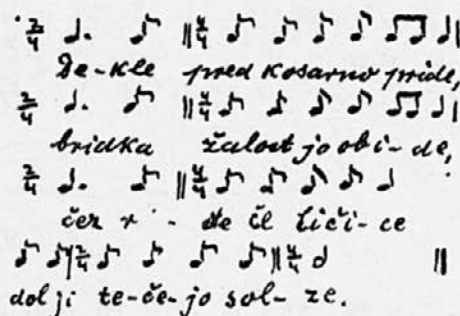 De-kle pred kosarno pride,
bridka žalost jo obi-de,
čez r - de či liči-ce
dol ji te-če-jo sol-ze.